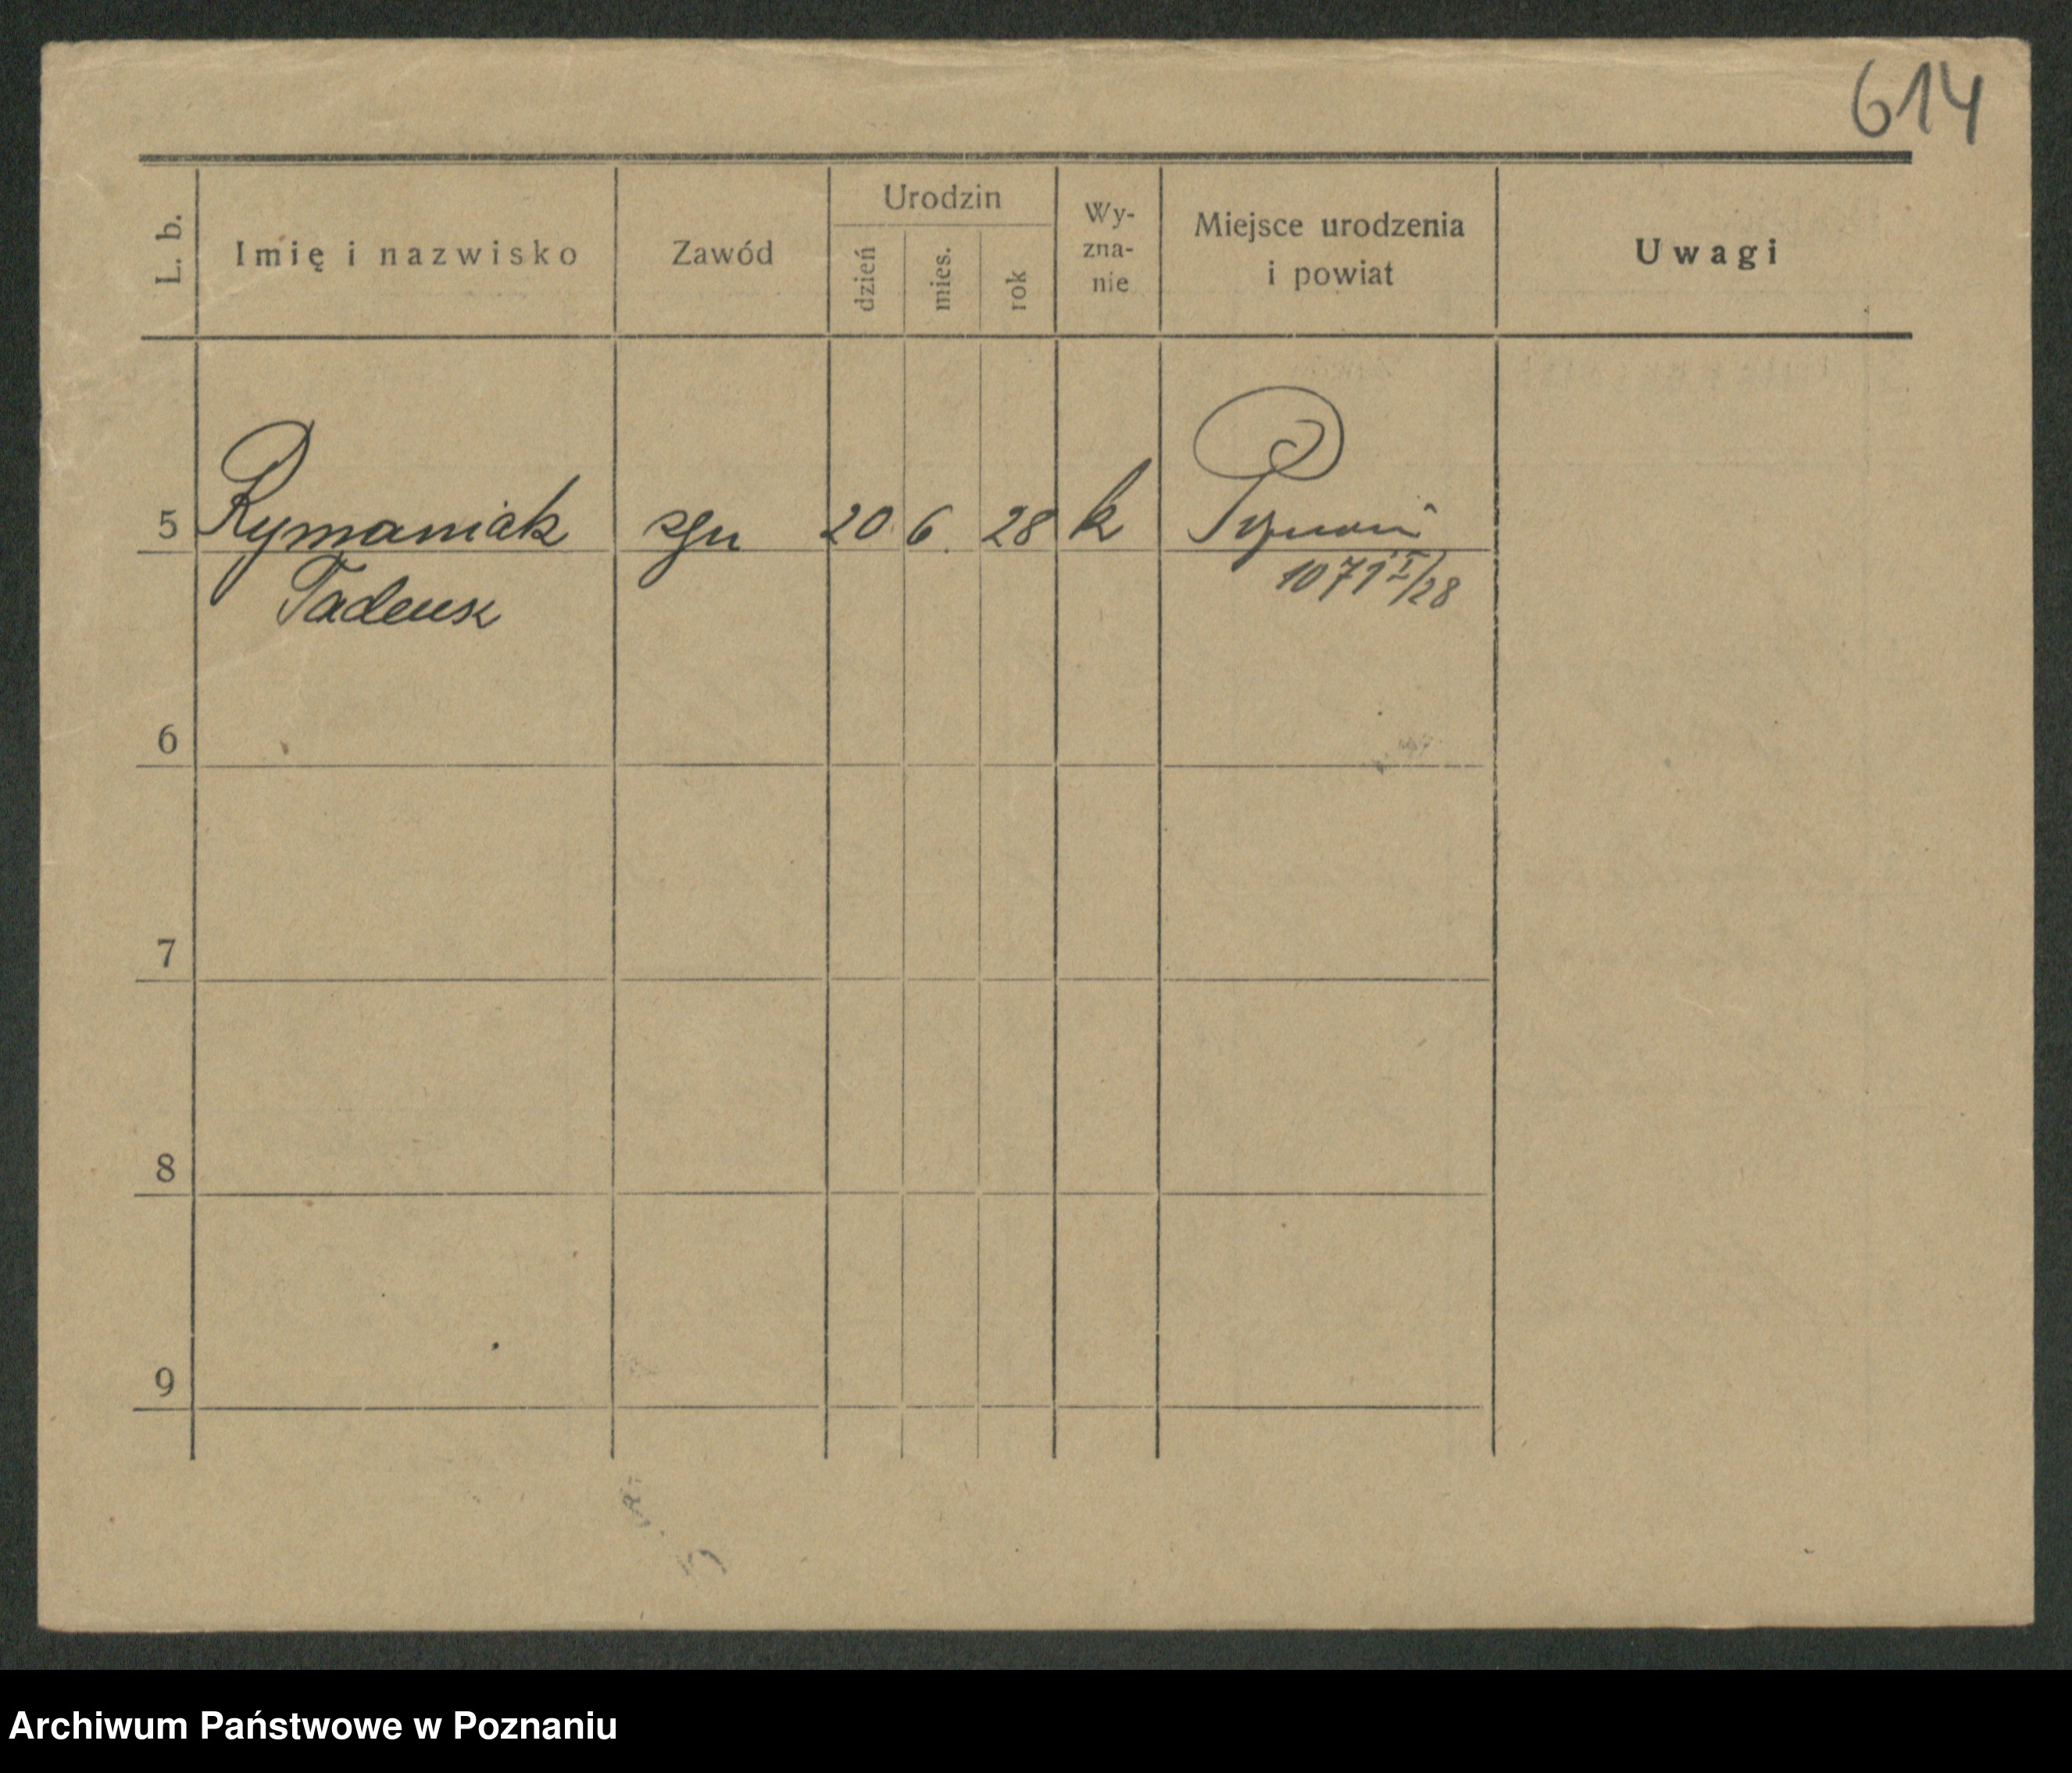 614
L. b. Imię i nazwisko Zawód Urodzin dzień mies. rok Wy-zna-nie Miejsce urodzenia i powiat Uwagi
5 Rymaniak 20 6. 28 k Poznań
Tadeusz 1071 I/28
6
7
8
9
Archiwum Państwowe w Poznaniu